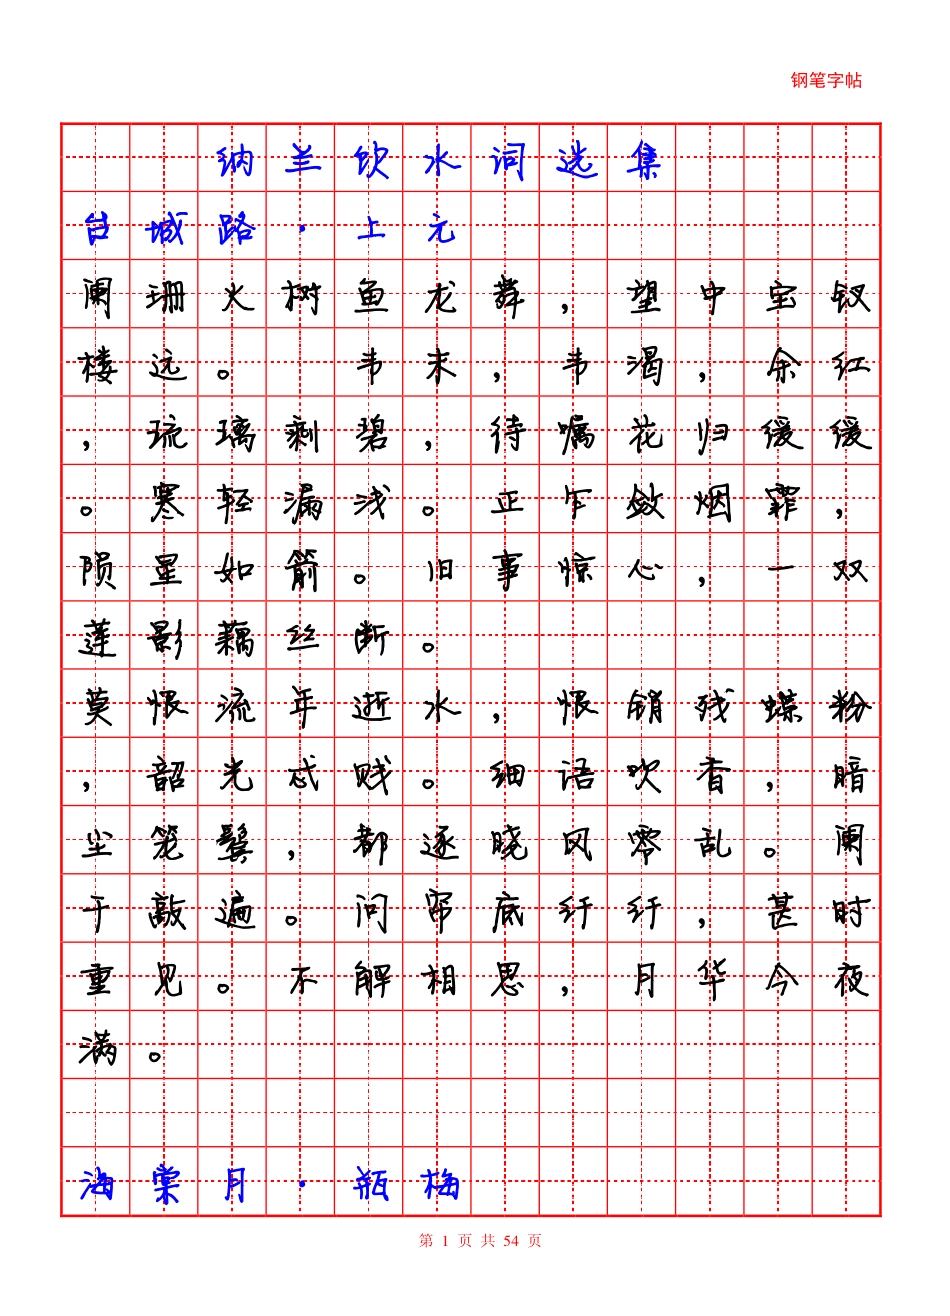 钢笔字帖
纳兰饮水词选集
台城路·上元
阑珊火树鱼龙舞，望中宝钗
楼远。 韦末，韦渴，余红
，琉璃剩碧，待嘱花归缓缓
。寒轻漏浅。正乍敛烟霏，
陨星如箭。旧事惊心，一双
莲影藕丝断。
莫恨流年逝水，恨销残蝶粉
，韶光忒贱。细语吹香，暗
尘笼鬓，都逐晓风零乱。阑
干敲遍。问帘底纤纤，甚时
重见。不解相思，月华今夜
满。
海棠月·瓶梅
第 1 页 共 54 页